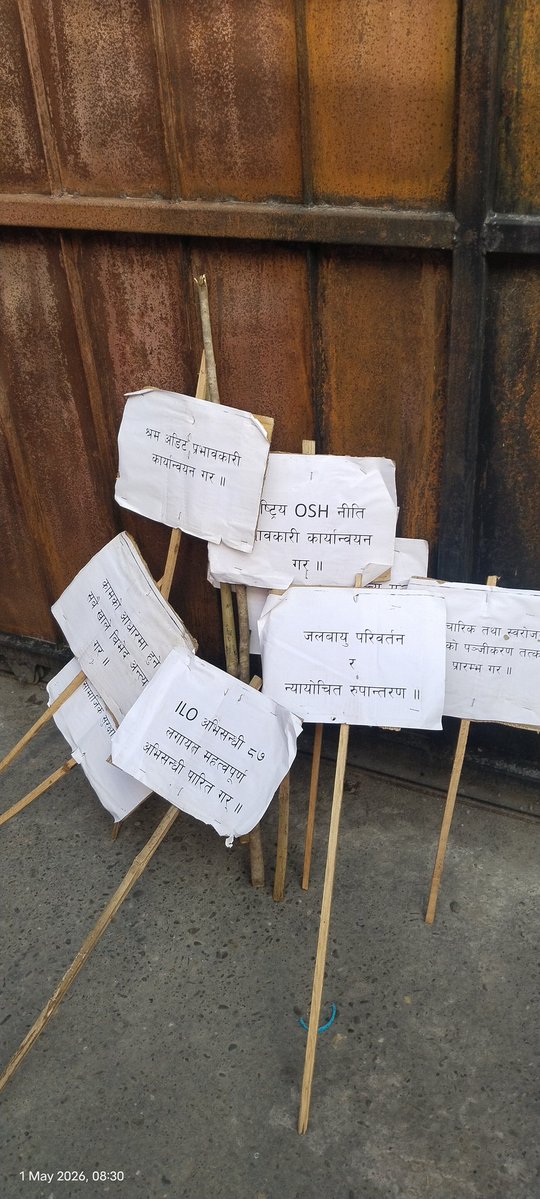 श्रम अडिट प्रभावकारी
कार्यान्वयन गर ॥
ष्ट्रिय OSH नीति
भावकारी कार्यान्वयन
गर् ॥
कामको आधारमा हुने
सबै खाले विभेद अन्त्य
गर ॥
जलवायु परिवर्तन
र
न्यायोचित रुपान्तरण ॥
चारिक तथा स्वरोज
को पञ्जीकरण तत्का
प्रारम्भ गर ॥
ILO अभिसन्धी ८७
लगायत महत्वपूर्ण
अभिसन्धी पारित गर् ॥
माजिक सुरक्षा
1 May 2026, 08:30